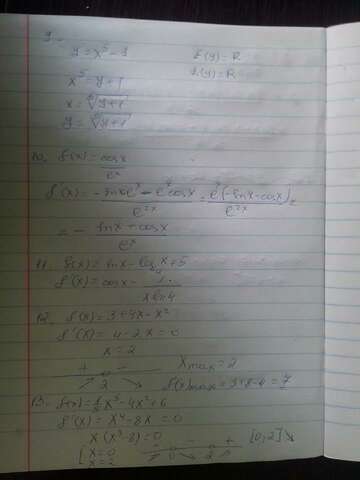 9.
y = x⁵ - 1   E(y) = R
x⁵ = y + 1   D(y) = R
x = ⁵√(y+1)
y = ⁵√(x+1)
10. f(x) = cosx / eˣ
f'(x) = (-sinx·eˣ - eˣcosx) / e²ˣ = eˣ(-sinx-cosx) / e²ˣ =
= - (sinx + cosx) / eˣ
11. f(x) = sinx - log₄x + 5
f'(x) = cosx - 1 / (x ln4)
12. f(x) = 3+4x-x²
f'(x) = 4-2x = 0
x = 2
+ -   Xmax = 2
2   f(x)max = 3+8-4 = 7
13. f(x) = 1/5 x⁵ - 4x² + 6
f'(x) = x⁴ - 8x = 0
x(x³-8) = 0   + - +   [0;2]↘
[ x=0   0 2
x=2